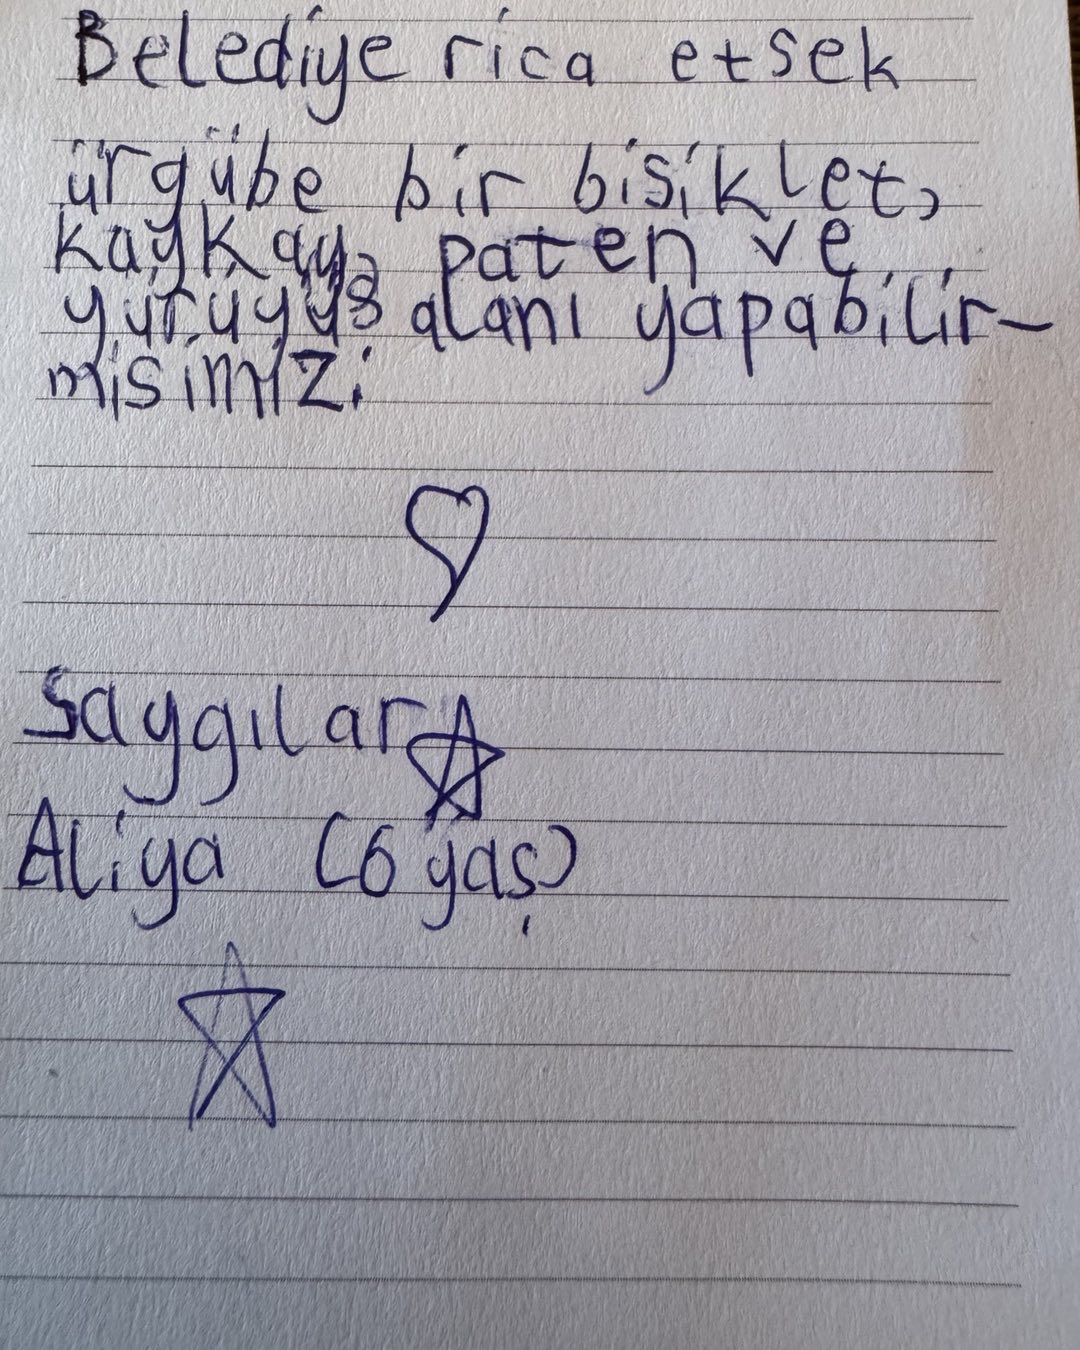 Belediye rica etsek
ürgübe bir bisiklet,
kaykay, paten ve
yürüyüş alanı yapabilir-
misimiz:
Saygılar
Aliya (6 yaş)